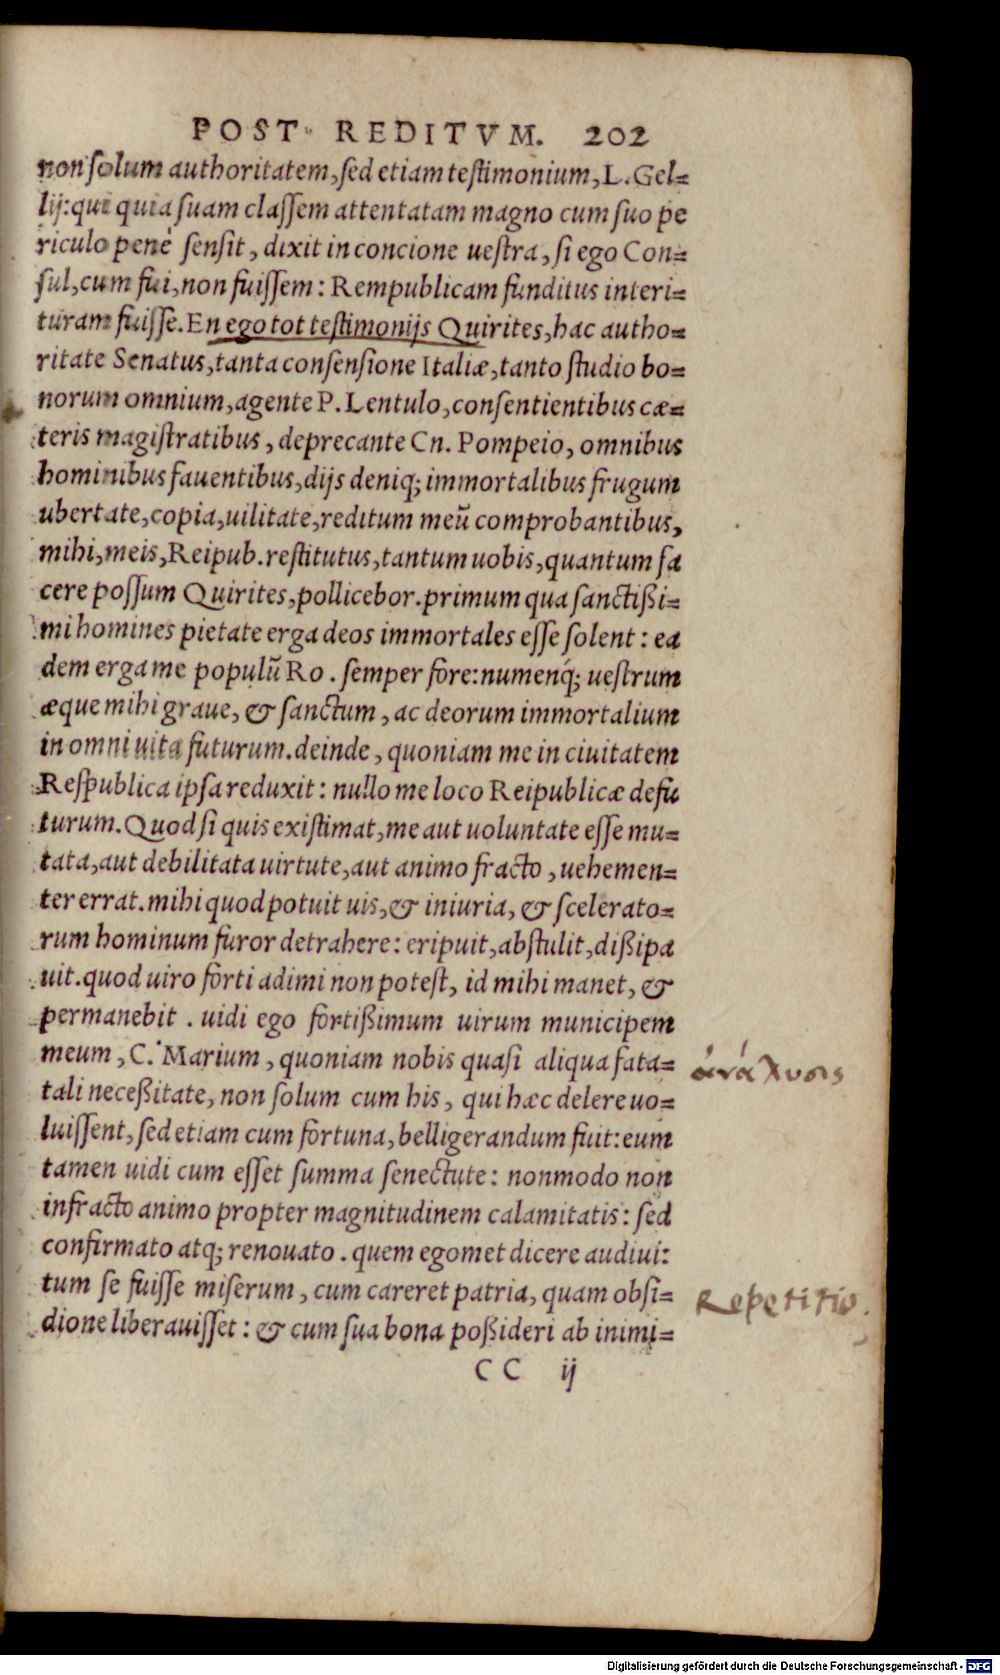 POST REDITVM. 202
non solum authoritatem, sed etiam testimonium, L. Gel=
lij: qui quia suam classem attentatam magno cum suo pe
riculo penè sensit, dixit in concione uestra, si ego Con=
sul, cum fui, non fuissem: Rempublicam funditus interi=
turam fuisse. En ego tot testimonijs Quirites, hac autho=
ritate Senatus, tanta consensione Italiæ, tanto studio bo=
norum omnium, agente P. Lentulo, consentientibus cæ=
teris magistratibus, deprecante Cn. Pompeio, omnibus
hominibus fauentibus, dijs deniq; immortalibus frugum
ubertate, copia, uilitate, reditum meũ comprobantibus,
mihi, meis, Reipub. restitutus, tantum uobis, quantum fa
cere possum Quirites, pollicebor. primum qua sanctißi=
mi homines pietate erga deos immortales esse solent: ea
dem erga me populũ Ro. semper fore: numenq́; uestrum
æque mihi graue, & sanctum, ac deorum immortalium
in omni uita futurum. deinde, quoniam me in ciuitatem
Respublica ipsa reduxit: nullo me loco Reipublicæ defu
turum. Quod si quis existimat, me aut uoluntate esse mu=
tata, aut debilitata uirtute, aut animo fracto, uehemen=
ter errat. mihi quod potuit uis, & iniuria, & scelerato=
rum hominum furor detrahere: eripuit, abstulit, dißipa
uit. quod uiro forti adimi non potest, id mihi manet, &
permanebit. uidi ego fortißimum uirum municipem
meum, C. Marium, quoniam nobis quasi aliqua fata=
tali neceßitate, non solum cum his, qui hæc delere uo=
luissent, sed etiam cum fortuna, belligerandum fuit: eum
tamen uidi cum esset summa senectute: nonmodo non
infracto animo propter magnitudinem calamitatis: sed
confirmato atq; renouato. quem egomet dicere audiui:
tum se fuisse miserum, cum careret patria, quam obsi=
dione liberauisset: & cum sua bona poßideri ab inimi=
CC ij
ἀνάλυσις
Repetitio.
Digitalisierung gefördert durch die Deutsche Forschungsgemeinschaft - DFG